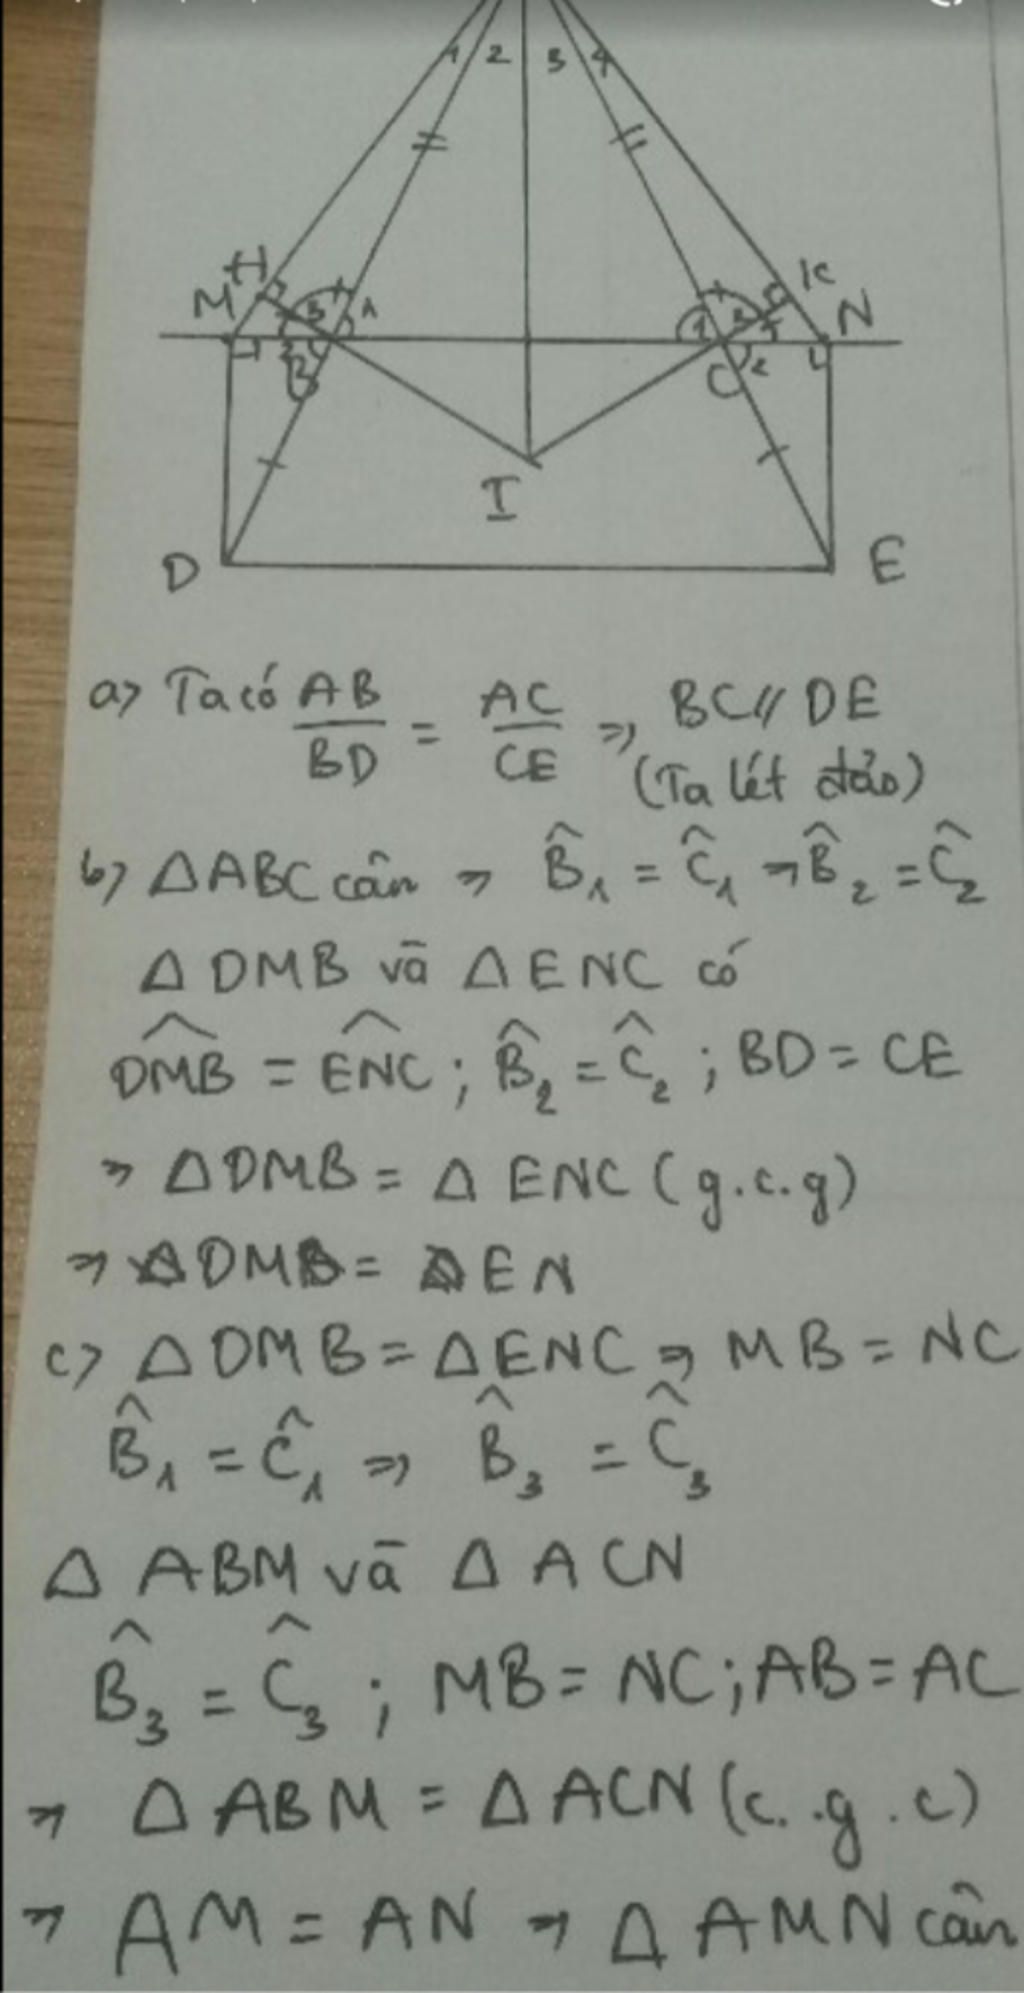 1 2 3 4
H
M
3 1
B
K
N
1 3
C 2
I
D
E
a) Ta có AB/BD = AC/CE => BC // DE
(Ta lét đảo)
b) △ABC cân => B̂₁ = Ĉ₁ => B̂₂ = Ĉ₂
△ DMB và △ ENC có
DMB̂ = ENĈ ; B̂₂ = Ĉ₂ ; BD = CE
=> △DMB = △ ENC (g.c.g)
=> DM = EN
c) △ DMB = △ENC => MB = NC
B̂₁ = Ĉ₁ => B̂₃ = Ĉ₃
△ ABM và △ ACN
B̂₃ = Ĉ₃ ; MB = NC ; AB = AC
=> △ ABM = △ ACN (c.g.c)
=> AM = AN => △ AMN cân